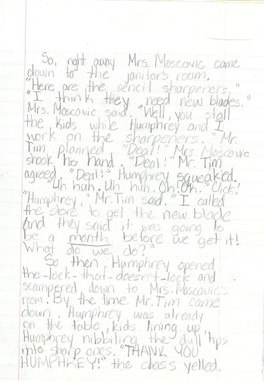 So, right away Mrs. Moscovic came
down to the janitor's room.
"Here are the pencil sharpeners."
"I think they need new blades."
Mrs. Moscovic said. "Well, you stall
the kids while Humphrey and I
work on the sharpeners." Mr.
Tim planned. "Deal!" Mrs. Moscovic
shook his hand. "Deal!" Mr. Tim
agreed. "Deal!" Humphrey squeaked.
Uh huh. Uh huh. Oh! Oh! Click!
"Humphrey," Mr. Tim said. "I called
the store to get the new blade
and they said it was going to
be a month before we get it!
What do we do?"
So then, Humphrey opened
the-lock-that-doesn't-lock and
scampered down to Mrs. Moscovic's
room. By the time Mr. Tim came
down, Humphrey was already
on the table, kids lining up,
Humphrey nibbiling the dull tips
into sharp ones. "THANK YOU
HUMPHREY!" the class yelled.